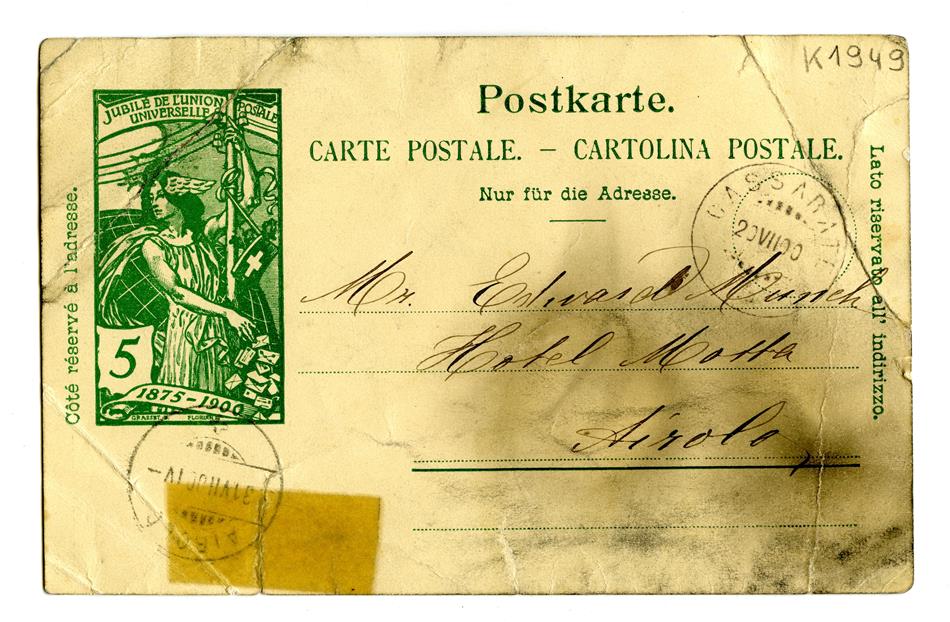 K1949
JUBILÉ DE L'UNION POSTALE
UNIVERSELLE
Postkarte.
CARTE POSTALE. – CARTOLINA POSTALE.
Nur für die Adresse.
Côté réservé à l'adresse.
Lato riservato all' indirizzo.
CASSARATE
20 VII 00
Mr. Edward Munch
Hotel Motta
Airolo
5
1875-1900
GRASSET
31 VII 00 IV